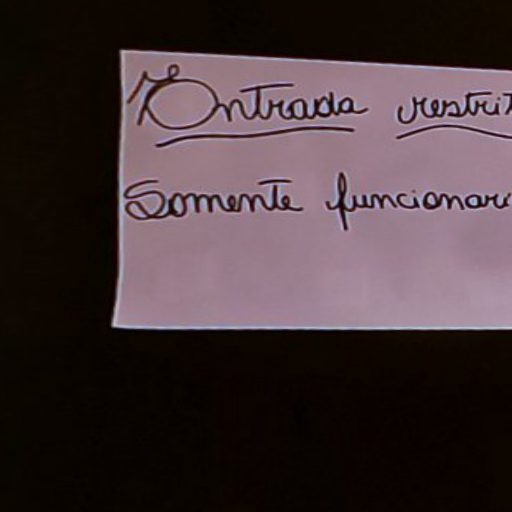 Entrada restrit
Somente funcionari